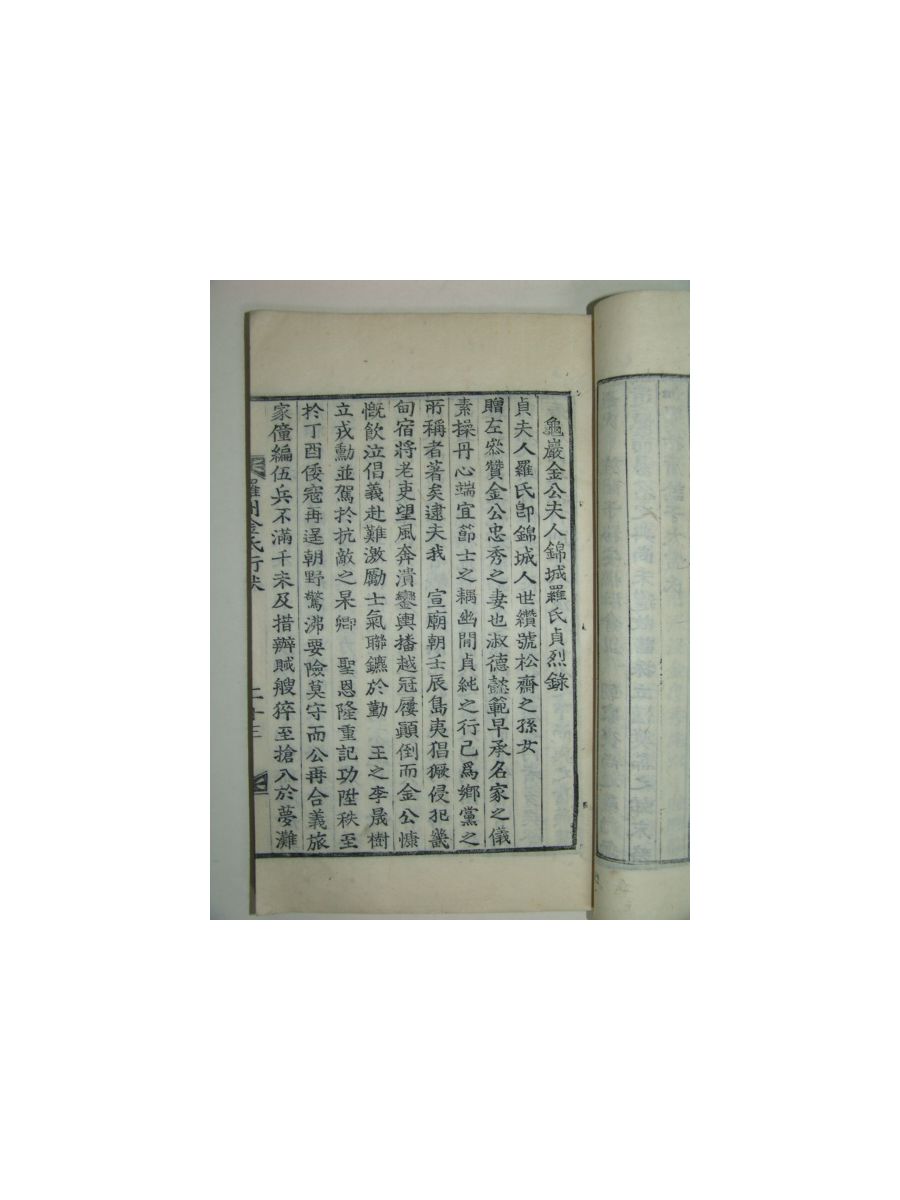 龜巖金公夫人錦城羅氏貞烈錄
貞夫人羅氏卽錦城人世纘號松齋之孫女
贈左叅贊金公忠秀之妻也淑德懿範早承名家之儀
素操丹心端宜節士之耦幽閒貞純之行已爲鄉黨之
所稱者著矣逮夫我 宣廟朝壬辰島夷猖獗侵犯畿
甸宿將老吏望風奔潰鑾輿播越冠屨顚倒而金公慷
慨飮泣倡義赴難激勵士氣聯鑣於勤 王之李晟樹
立戎勳並駕於抗敵之杲卿 聖恩隆重記功陞秩至
於丁酉倭寇再逞朝野驚沸要險莫守而公再合義旅
家僮編伍兵不滿千未及措辦賊艘猝至搶入於夢灘
羅州金氏行
二十三